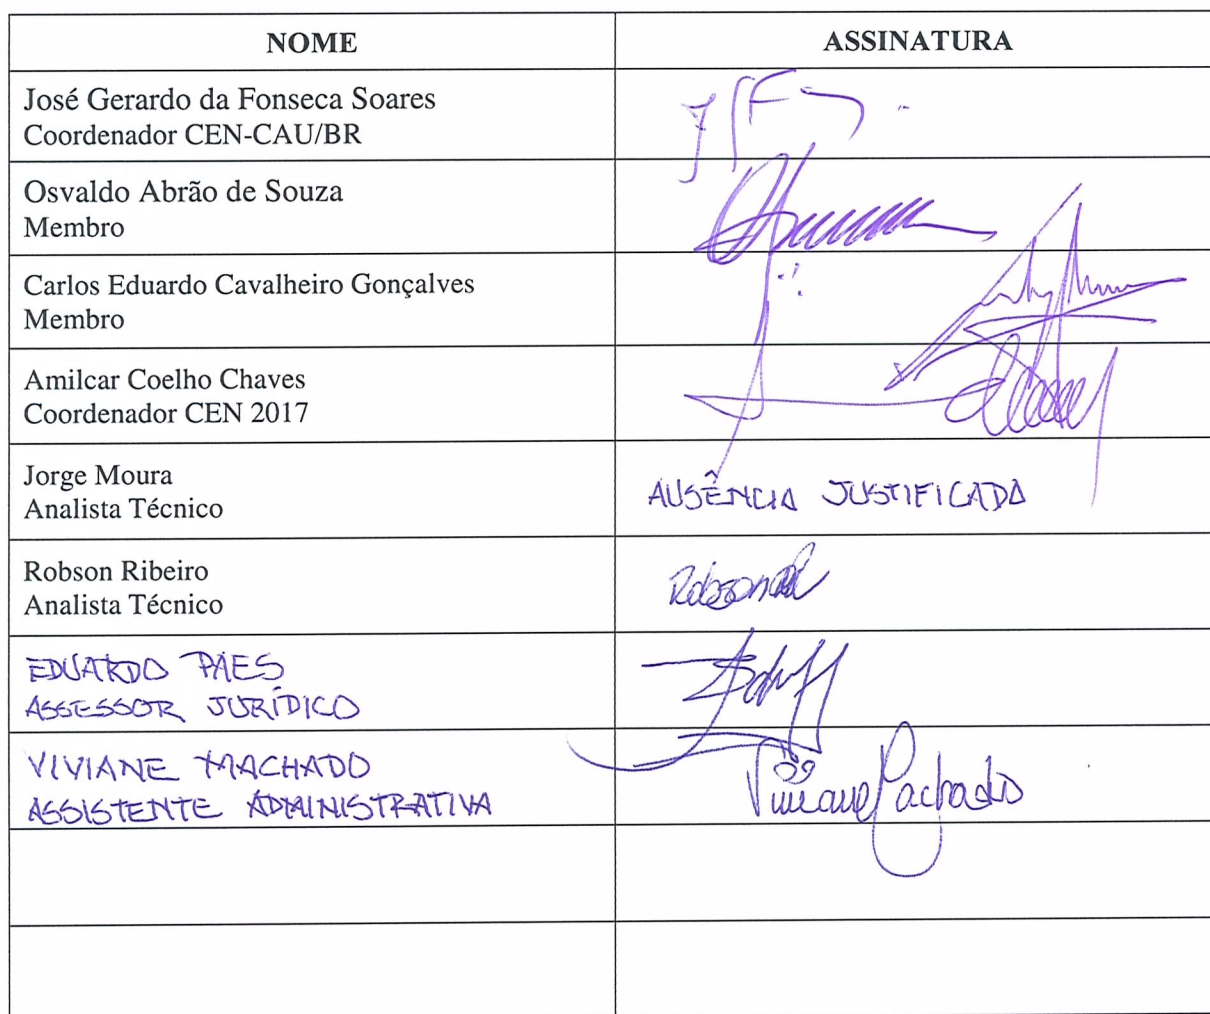 NOME
ASSINATURA
José Gerardo da Fonseca Soares
Coordenador CEN-CAU/BR
Osvaldo Abrão de Souza
Membro
Carlos Eduardo Cavalheiro Gonçalves
Membro
Amilcar Coelho Chaves
Coordenador CEN 2017
Jorge Moura
Analista Técnico
AUSÊNCIA JUSTIFICADA
Robson Ribeiro
Analista Técnico
EDUARDO PAES
ASSESSOR JURÍDICO
VIVIANE MACHADO
ASSISTENTE ADMINISTRATIVA
Viviane Machado